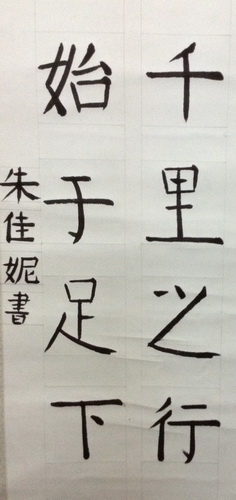 千里之行
始于足下
朱佳妮書